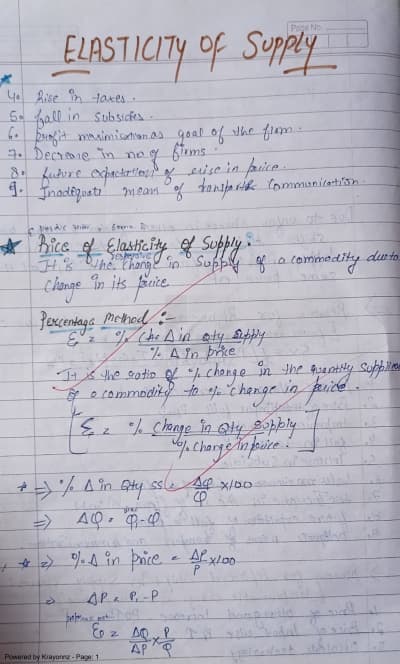 Page No.
ELASTICITY OF SUPPLY
4. Rise in taxes.
5. fall in subsides.
6. profit maximisation as goal of the firm.
7. Decrease in no of firms.
8. future expectations of rise in price.
9. Inadequate mean of transport communication.
Rice of Elasticity of Supply:
It is the change in Supply of a commodity due to
change in its price
Percentage Method :-
% Che Δ in Qty Supply
% Δ in price
It is the ratio of % change in the quantity Supplied
of a commodity to % change in price.
% Change in Qty Supply
% Change in price.
* => % Δ in Qty ss = ΔQ/Q x100
=> ΔQ = Q₁-Q
* => % Δ in price = ΔP/P x100
ΔP = P₁-P
= ΔQ/ΔP x P/Q
Powered by Krayonnz - Page: 1